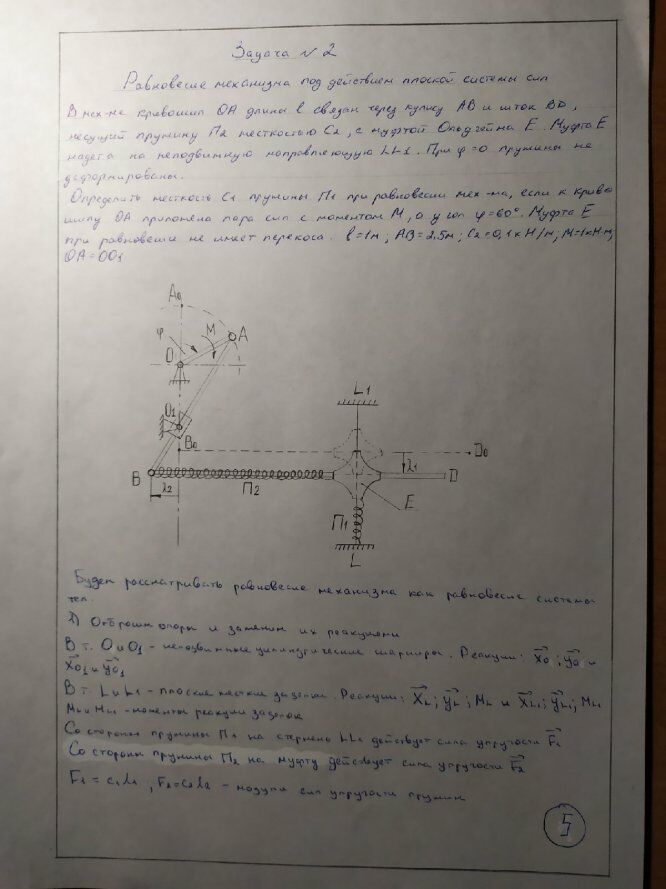 Задача №2
Равновесие механизма под действием плоской системы сил
В мех-ме кривошип OA длины l связан через кулису AB и шток BD,
несущий пружину П2 жесткостью C2, с муфтой E. Муфта E
надета на неподвижную направляющую LL1. При φ=0 пружины не
деформированы.
Определить жесткость C1 пружины П1 при равновесии мех-ма, если к криво
шипу OA приложена пара сил с моментом M, а угол φ=60°. Муфта E
при равновесии не имеет перекоса. l=1м; AB=2.5м; C2=0,1кН/м; M=1кНм;
OA=OO1
A0
φ
M
A
O
L1
O1
B0
D0
λ1
B
λ2
П2
D
E
П1
L
Будем рассматривать равновесие механизма как равновесие системы
тел.
1) Отбросим опоры и заменим их реакциями
В т. O и O1 - неподвижные цилиндрические шарниры. Реакции: X0; Y0 и
X01 и Y01
В т. L и L1 - плоские жесткие заделки. Реакции: XL; YL; ML и XL1; YL1; ML1
ML и ML1 - моменты реакции заделок
Со стороны пружины П1 на стержень LL1 действует сила упругости F1
Со стороны пружины П2 на муфту действует сила упругости F2
F1 = c1λ1; F2=c2λ2 - модули сил упругости пружин
5